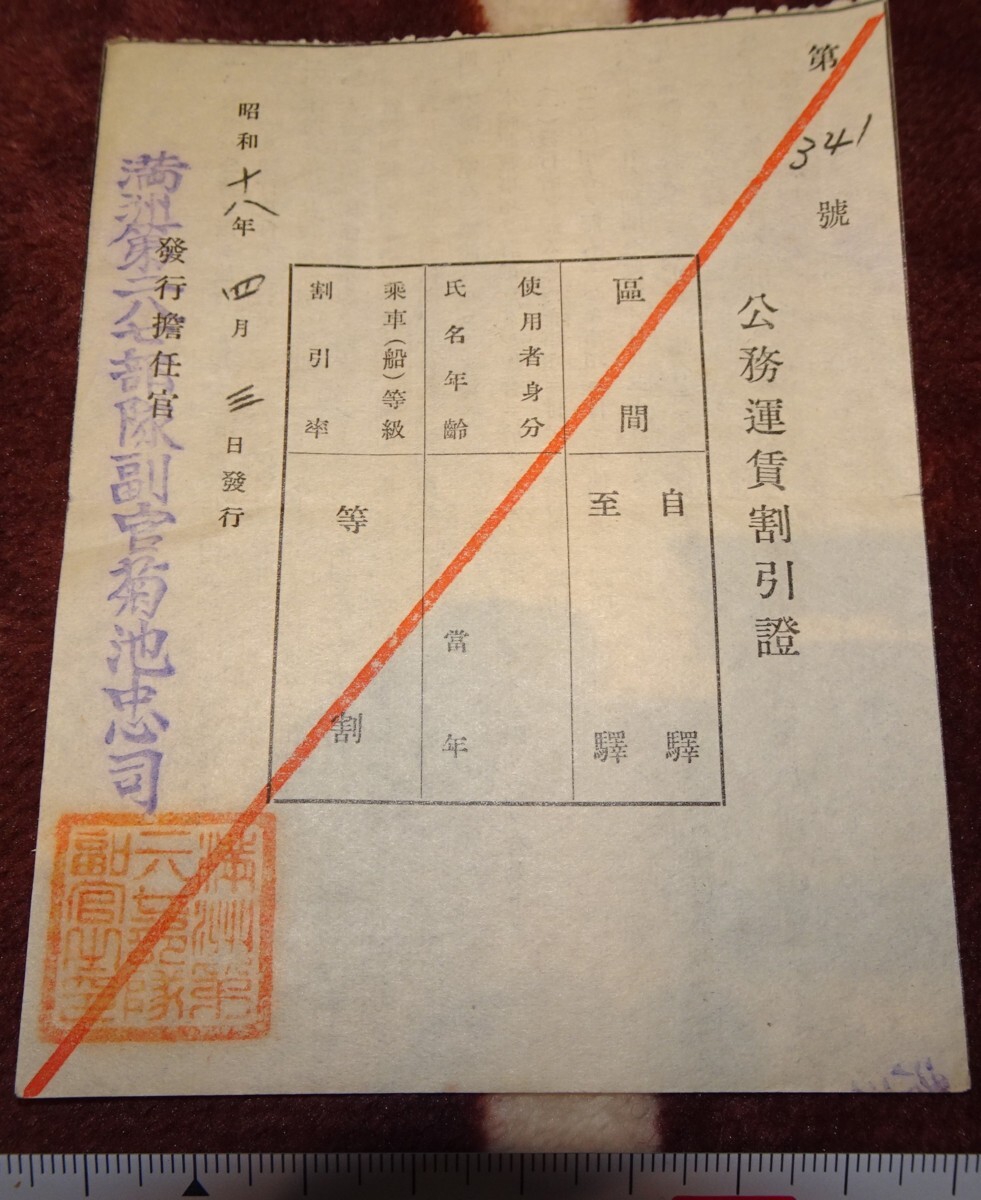 第341號
公務運賃割引證
區間
自 驛
至 驛
使用者身分
氏名年齡
當 年
乘車(船)等級
割引率
等
割
昭和十八年四月三日發行
發行擔任官
満洲第二八七部隊副官菊池忠司
満洲第
六七部隊
副官之印